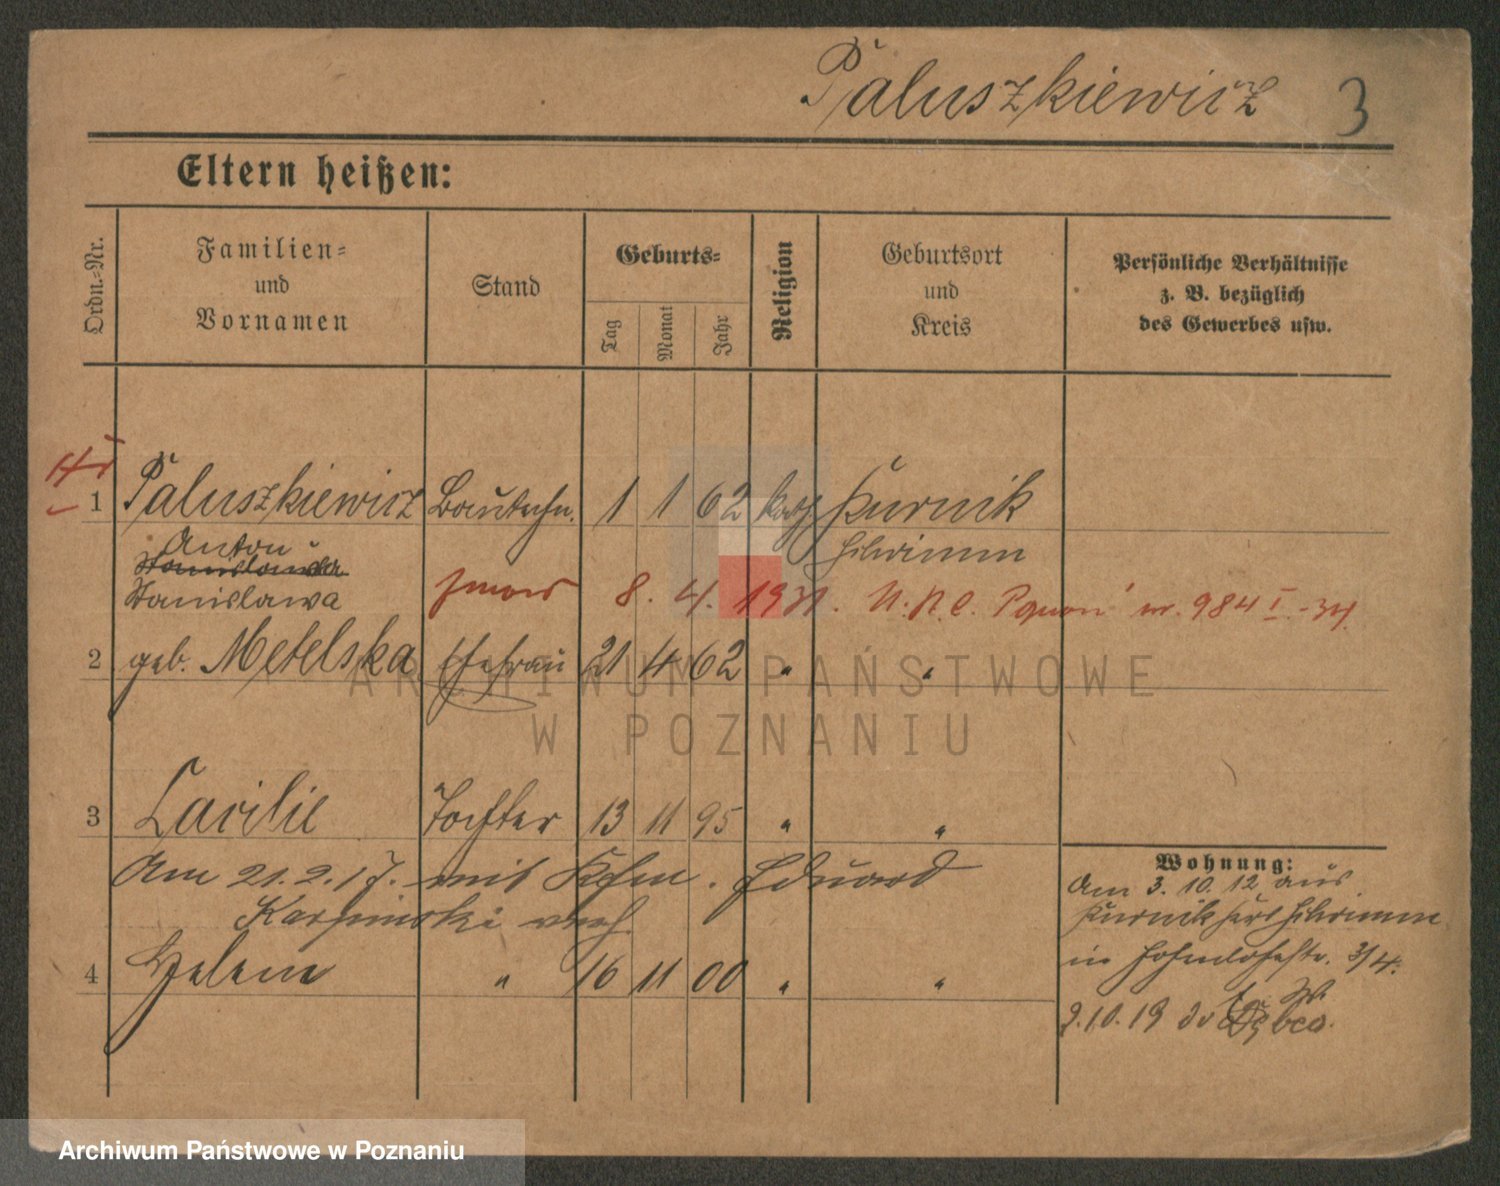 Paluszkiewicz 3
Eltern heißen:
Ordn.-Nr. Familien- und Vornamen Stand Geburts- Tag Monat Jahr Religion Geburtsort und Kreis Persönliche Verhältnisse z. B. bezüglich des Gewerbes usw.
1 Paluszkiewicz Bautechn. 1 1 62 kath Kurnik
Anton Schrimm
Stanisława
zmarł 8. 4. 1931. U.S.C. Poznań nr. 984 I.-31.
2 geb. Metelska Ehefrau 21 4 62 " "
3 Cäcilie Tochter 13 11 95 " "
Am 21.2.17. mit Kfm. Eduard
Karpinski verh.
4 Helene " 16 11 00 " "
Wohnung:
Am 3.10.12 aus
Kurnik Krs Schrimm
in Hohenlohestr. 3/4.
2.10.19
ARCHIWUM PAŃSTWOWE
W POZNANIU
Archiwum Państwowe w Poznaniu